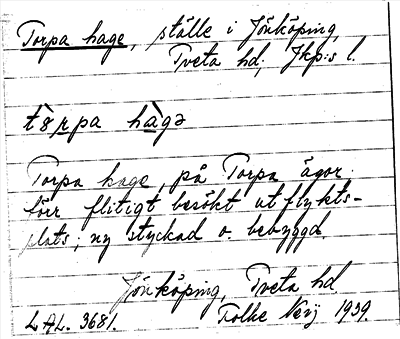 Torpa hage, ställe i Jönköping,
Tveta hd, Jkp:s l.
tòrpa hàgə
Torpa hage, på Torpa ägor
förr flitigt besökt utflykts-
plats; ny styckad o. bebyggd
Jönköping, Tveta hd
LAL. 3681. Folke 1939.